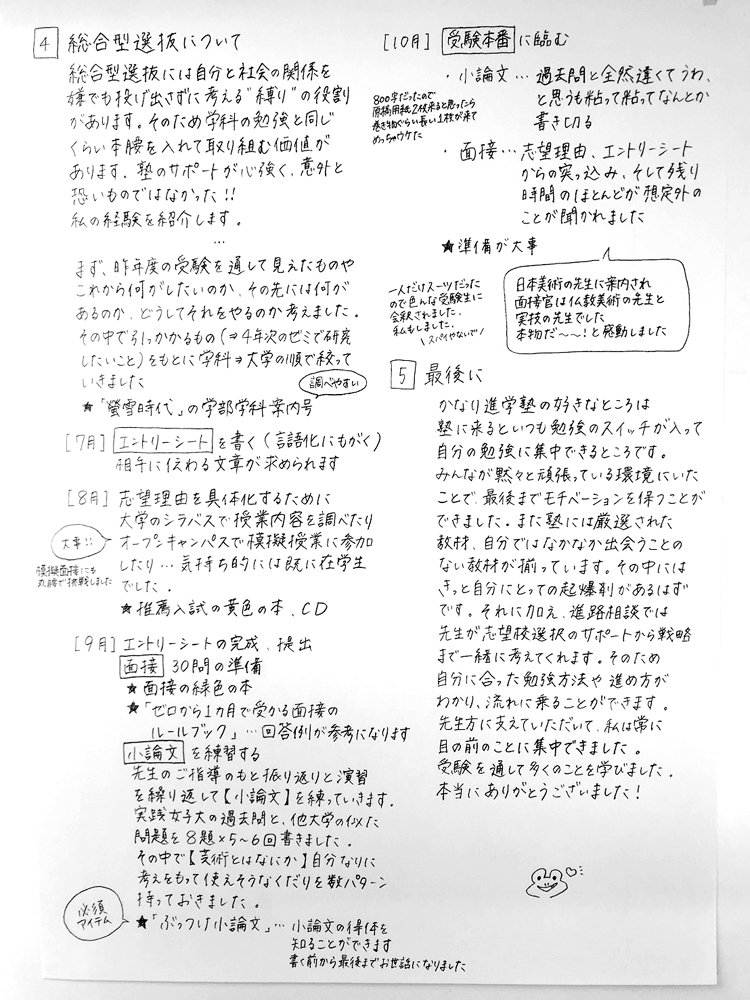 4 総合型選抜について
総合型選抜には自分と社会の関係を
嫌でも投げ出さずに考える"縛り"の役割
があります。そのため学科の勉強と同じ
くらい本腰を入れて取り組む価値が
あります。塾のサポートが心強く、意外と
恐いものではなかった!!
私の経験を紹介します。
…
まず、昨年度の受験を通して見えたものや
これから何がしたいのか、その先には何が
あるのか、どうしてそれをやるのか考えました。
その中で引っかかるもの(⇒4年次のゼミで研究
したいこと)をもとに学科⇒大学の順で絞って
いきました
調べやすい
★「螢雪時代」の学部学科案内号
[7月] エントリーシートを書く(言語化にもがく)
相手に伝わる文章が求められます
[8月] 志望理由を具体化するために
大学のシラバスで授業内容を調べたり
オープンキャンパスで模擬授業に参加
したり…気持ち的には既に在学生
でした.
大事!!
模擬面接にも
丸腰で挑戦しました
★推薦入試の黄色の本、CD
[9月] エントリーシートの完成、提出
面接 30問の準備
★面接の緑色の本
★「ゼロから1カ月で受かる面接の
ルールブック」…回答例が参考になります
小論文 を練習する
先生のご指導のもと振り返りと演習
を繰り返して【小論文】を練っていきます。
実践女子大の過去問と、他大学の似た
問題を8題×5～6回書きました.
その中で【芸術とはなにか】自分なりに
考えをもって使えそうなくだりを数パターン
持っておきました。
必須
アイテム
★「ぶっつけ小論文」…小論文の得体を
知ることができます
書く前から最後までお世話になりました
[10月] 受験本番 に臨む
・小論文…過去問と全然違くてうわ、
と思うも粘って粘ってなんとか
書き切る
800字だったので
原稿用紙2枚来ると思ったら
巻き物ぐらい長い1枚が来て
めっちゃウケた
・面接…志望理由、エントリーシート
からの突っ込み、そして残り
時間のほとんどが想定外の
ことが聞かれました
★準備が大事
一人だけスーツだった
ので色んな受験生に
会釈されました.
私もしました.
\スパイやないで/
日本美術の先生に案内され
面接官は仏教美術の先生と
実技の先生でした
本物だ～～!と感動しました
5 最後に
かなり進学塾の好きなところは
塾に来るといつも勉強のスイッチが入って
自分の勉強に集中できるところです。
みんなが黙々と頑張っている環境にいた
ことで、最後までモチベーションを保つことが
できました.また塾には厳選された
教材、自分ではなかなか出会うことの
ない教材が揃っています。その中には
きっと自分にとっての起爆剤があるはず
です。それに加え、進路相談では
先生が志望校選択のサポートから戦略
まで一緒に考えてくれます。そのため
自分に合った勉強方法や進め方が
わかり、流れに乗ることができます。
先生方に支えていただいて、私は常に
目の前のことに集中できました。
受験を通して多くのことを学びました.
本当にありがとうございました!